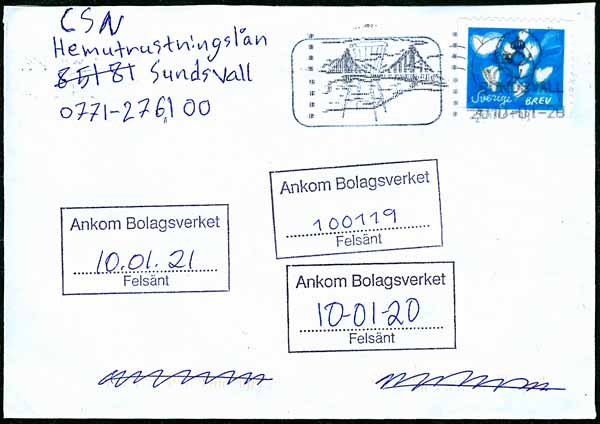 CSN
Hemutrustningslån
85181 Sundsvall
0771-276100
Sverige BREV
SUNDSVALL
Ankom Bolagsverket
10.01.21
Felsänt
Ankom Bolagsverket
100119
Felsänt
Ankom Bolagsverket
10-01-20
Felsänt